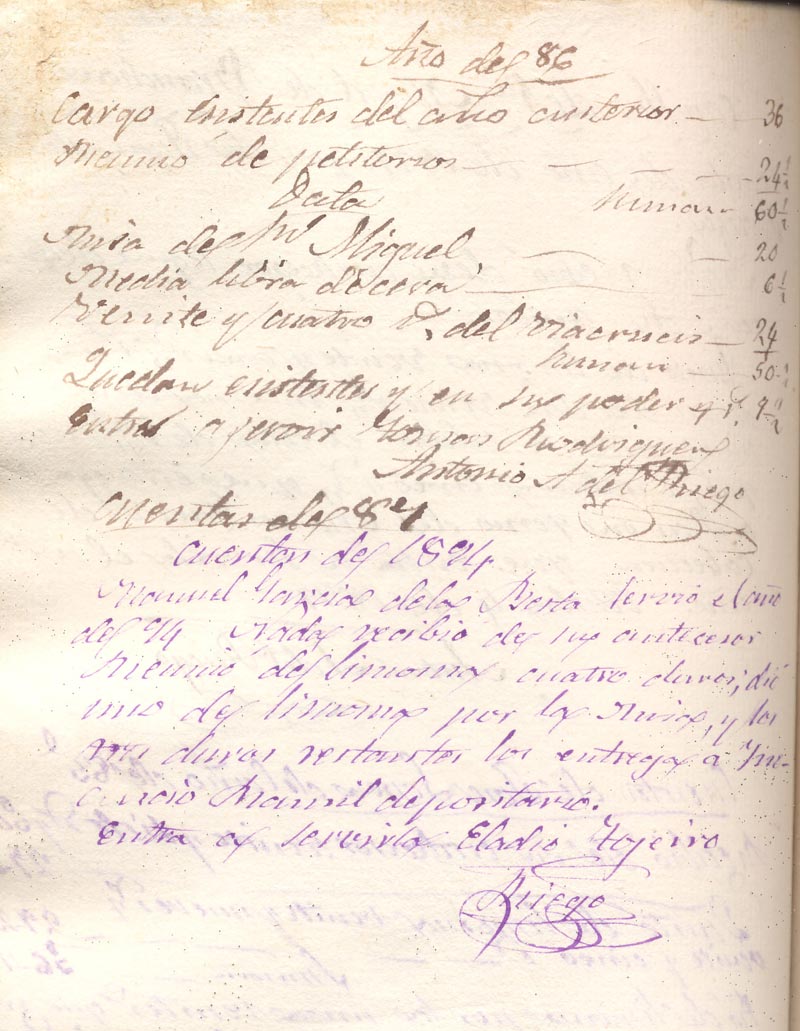 Año de 86
Cargo existentes del año anterior — 36
Reunió de petitorios — 24 1/2
Data Suman 60 1/2
Misa de Sn Miguel 20
Media libra de cera 6 1/2
Veinte y cuatro rs del Viacrucis — 24
Suman — 50 1/2
Quedan existentes y en su poder 9 rs 9 1/2
entra a servir Tomas Rodriguez
Antonio A del Riego
Cuentas de 87
Cuentas de 1894
Manuel Garcia de la Barta servio el año
de 94 Nada recibio de su antecesor
Reunió de limosna cuatro duros; dió
uno de limosna por la Misa, y los
tres duros restantes los entrega a
depositario.
Entra a servirla Eladio Tojeiro
Riego